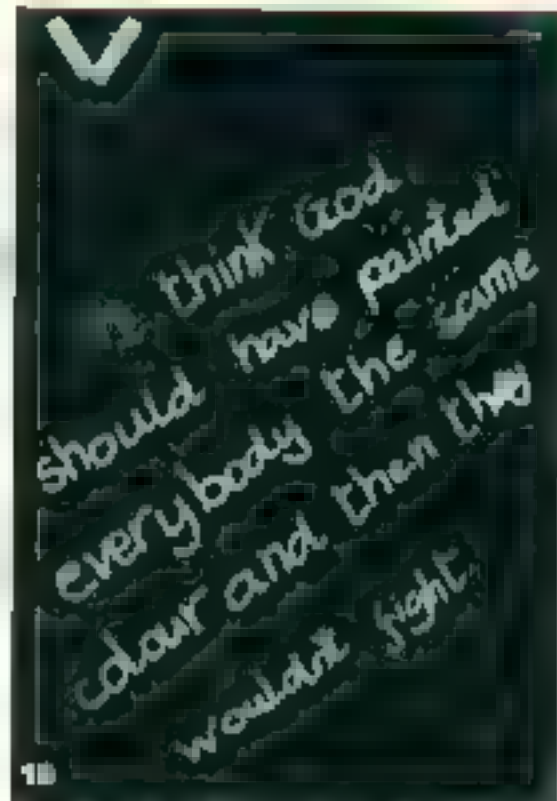 V
think God
should have painted
everybody the same
colour and then they
wouldnt fight